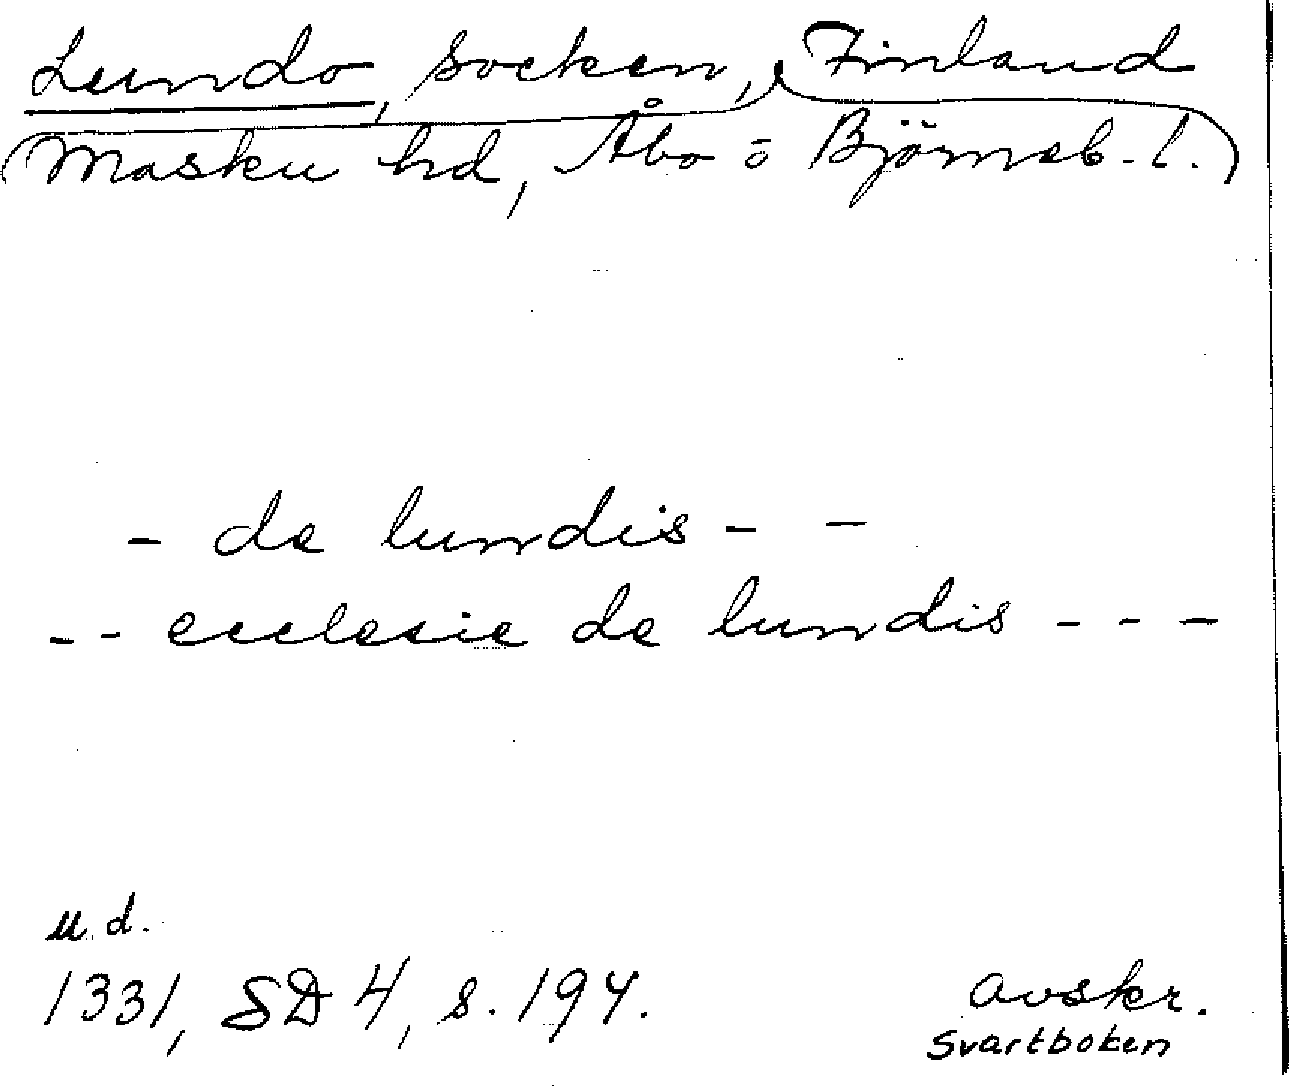 Lundo, socken, Finland
(Masku hd, Åbo o Björneb. l.)
- de lundis - -
-- ecclesie de lundis - - -
u. d.
1331, SD 4, s. 194. avskr.
Svartboken